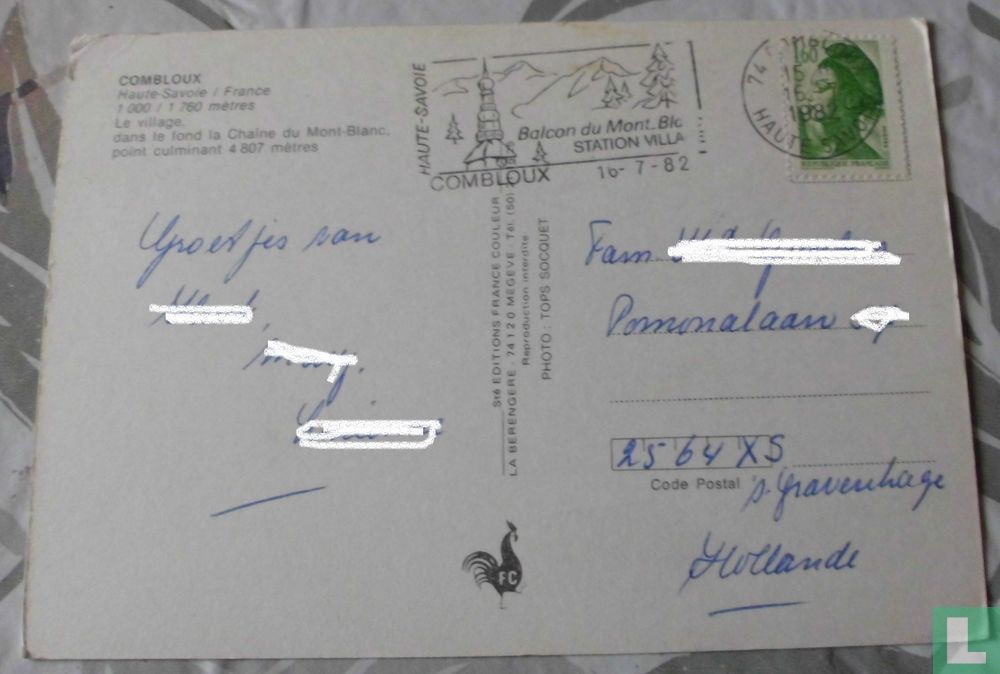 COMBLOUX
Haute-Savoie / France
1 000 / 1 760 mètres
Le village,
dans le fond la Chaîne du Mont-Blanc,
point culminant 4 807 mètres
HAUTE-SAVOIE
Balcon du Mont-Blc
STATION VILLA
COMBLOUX 16-7-82
74
15
1982
HAUTE
1,60
REPUBLIQUE FRANÇAISE
Groetjes van
Sté EDITIONS FRANCE COULEUR
LA BERENGERE - 74120 MEGEVE - Tél. (50)
Reproduction interdite
PHOTO : TOPS SOCQUET
FC
Fam.
Pomonalaan
2564 XS
Code Postal
s-Gravenhage
Hollande
L